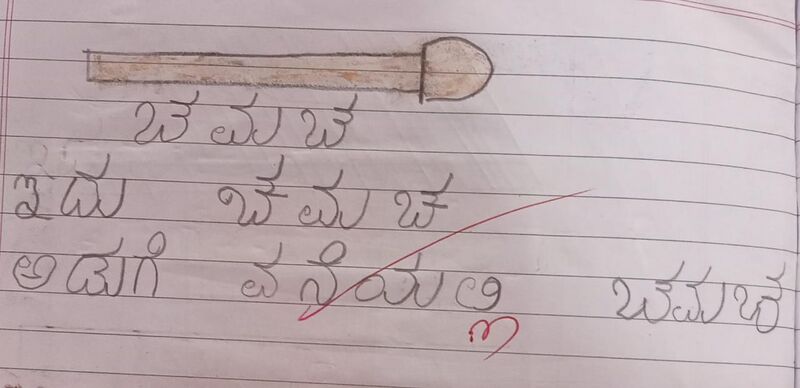 ಚಮಚ
ಇದು ಚಮಚ
ಅಡುಗಿ ಮನಿಯಲ್ಲ ಚಮಚ